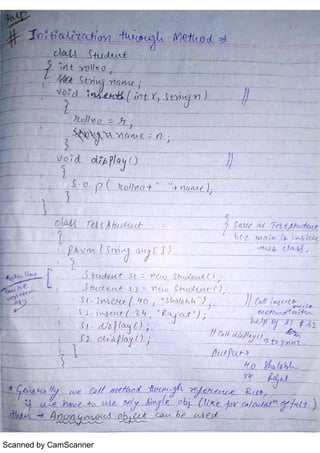 # Initialization through Method →
class Student
{ int rollno;
String name;
void insert( int r, String n) //
{
rollno = r;
name = n;
}
void display() //
{
S.o.p( rollno + " " + name);
}
}
class TestStudent
{
psvm ( String arg[ ] )
{
} Save as TestStudent
b/z main is inside
this class.
Student s1 = new Student();
Student s2 = new Student();
s1.insert( 40, "Shalabh");
s2.insert( 34, "Rajat");
s1.display();
s2.display();
}
}
// Call insert
method with
help of s1 & s2
// Call display()
to print.
Output →
40 Shalabh
34 Rajat
* Generally we call method through reference But,
if we have to use only single obj. (like for calculatⁿ of fact.)
then → Anonymous object can be used.
Scanned by CamScanner